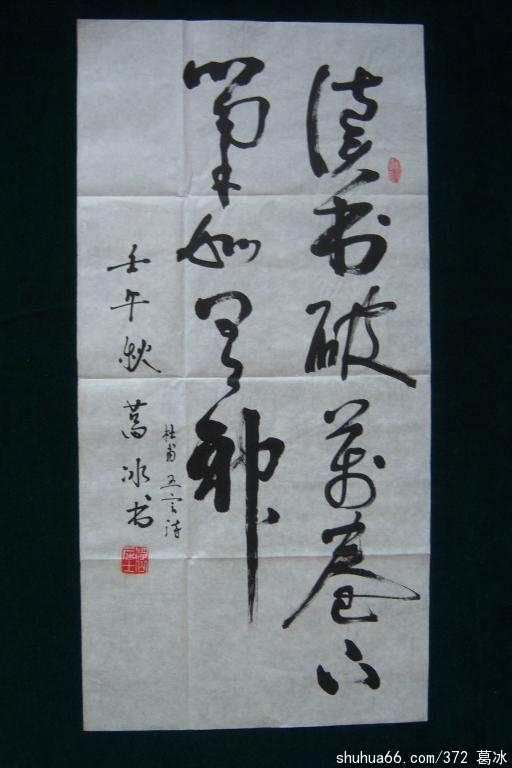 讀书破萬卷下
筆如有神
杜甫五言诗
壬午秋 葛冰书
shuhua66.com/372 葛冰